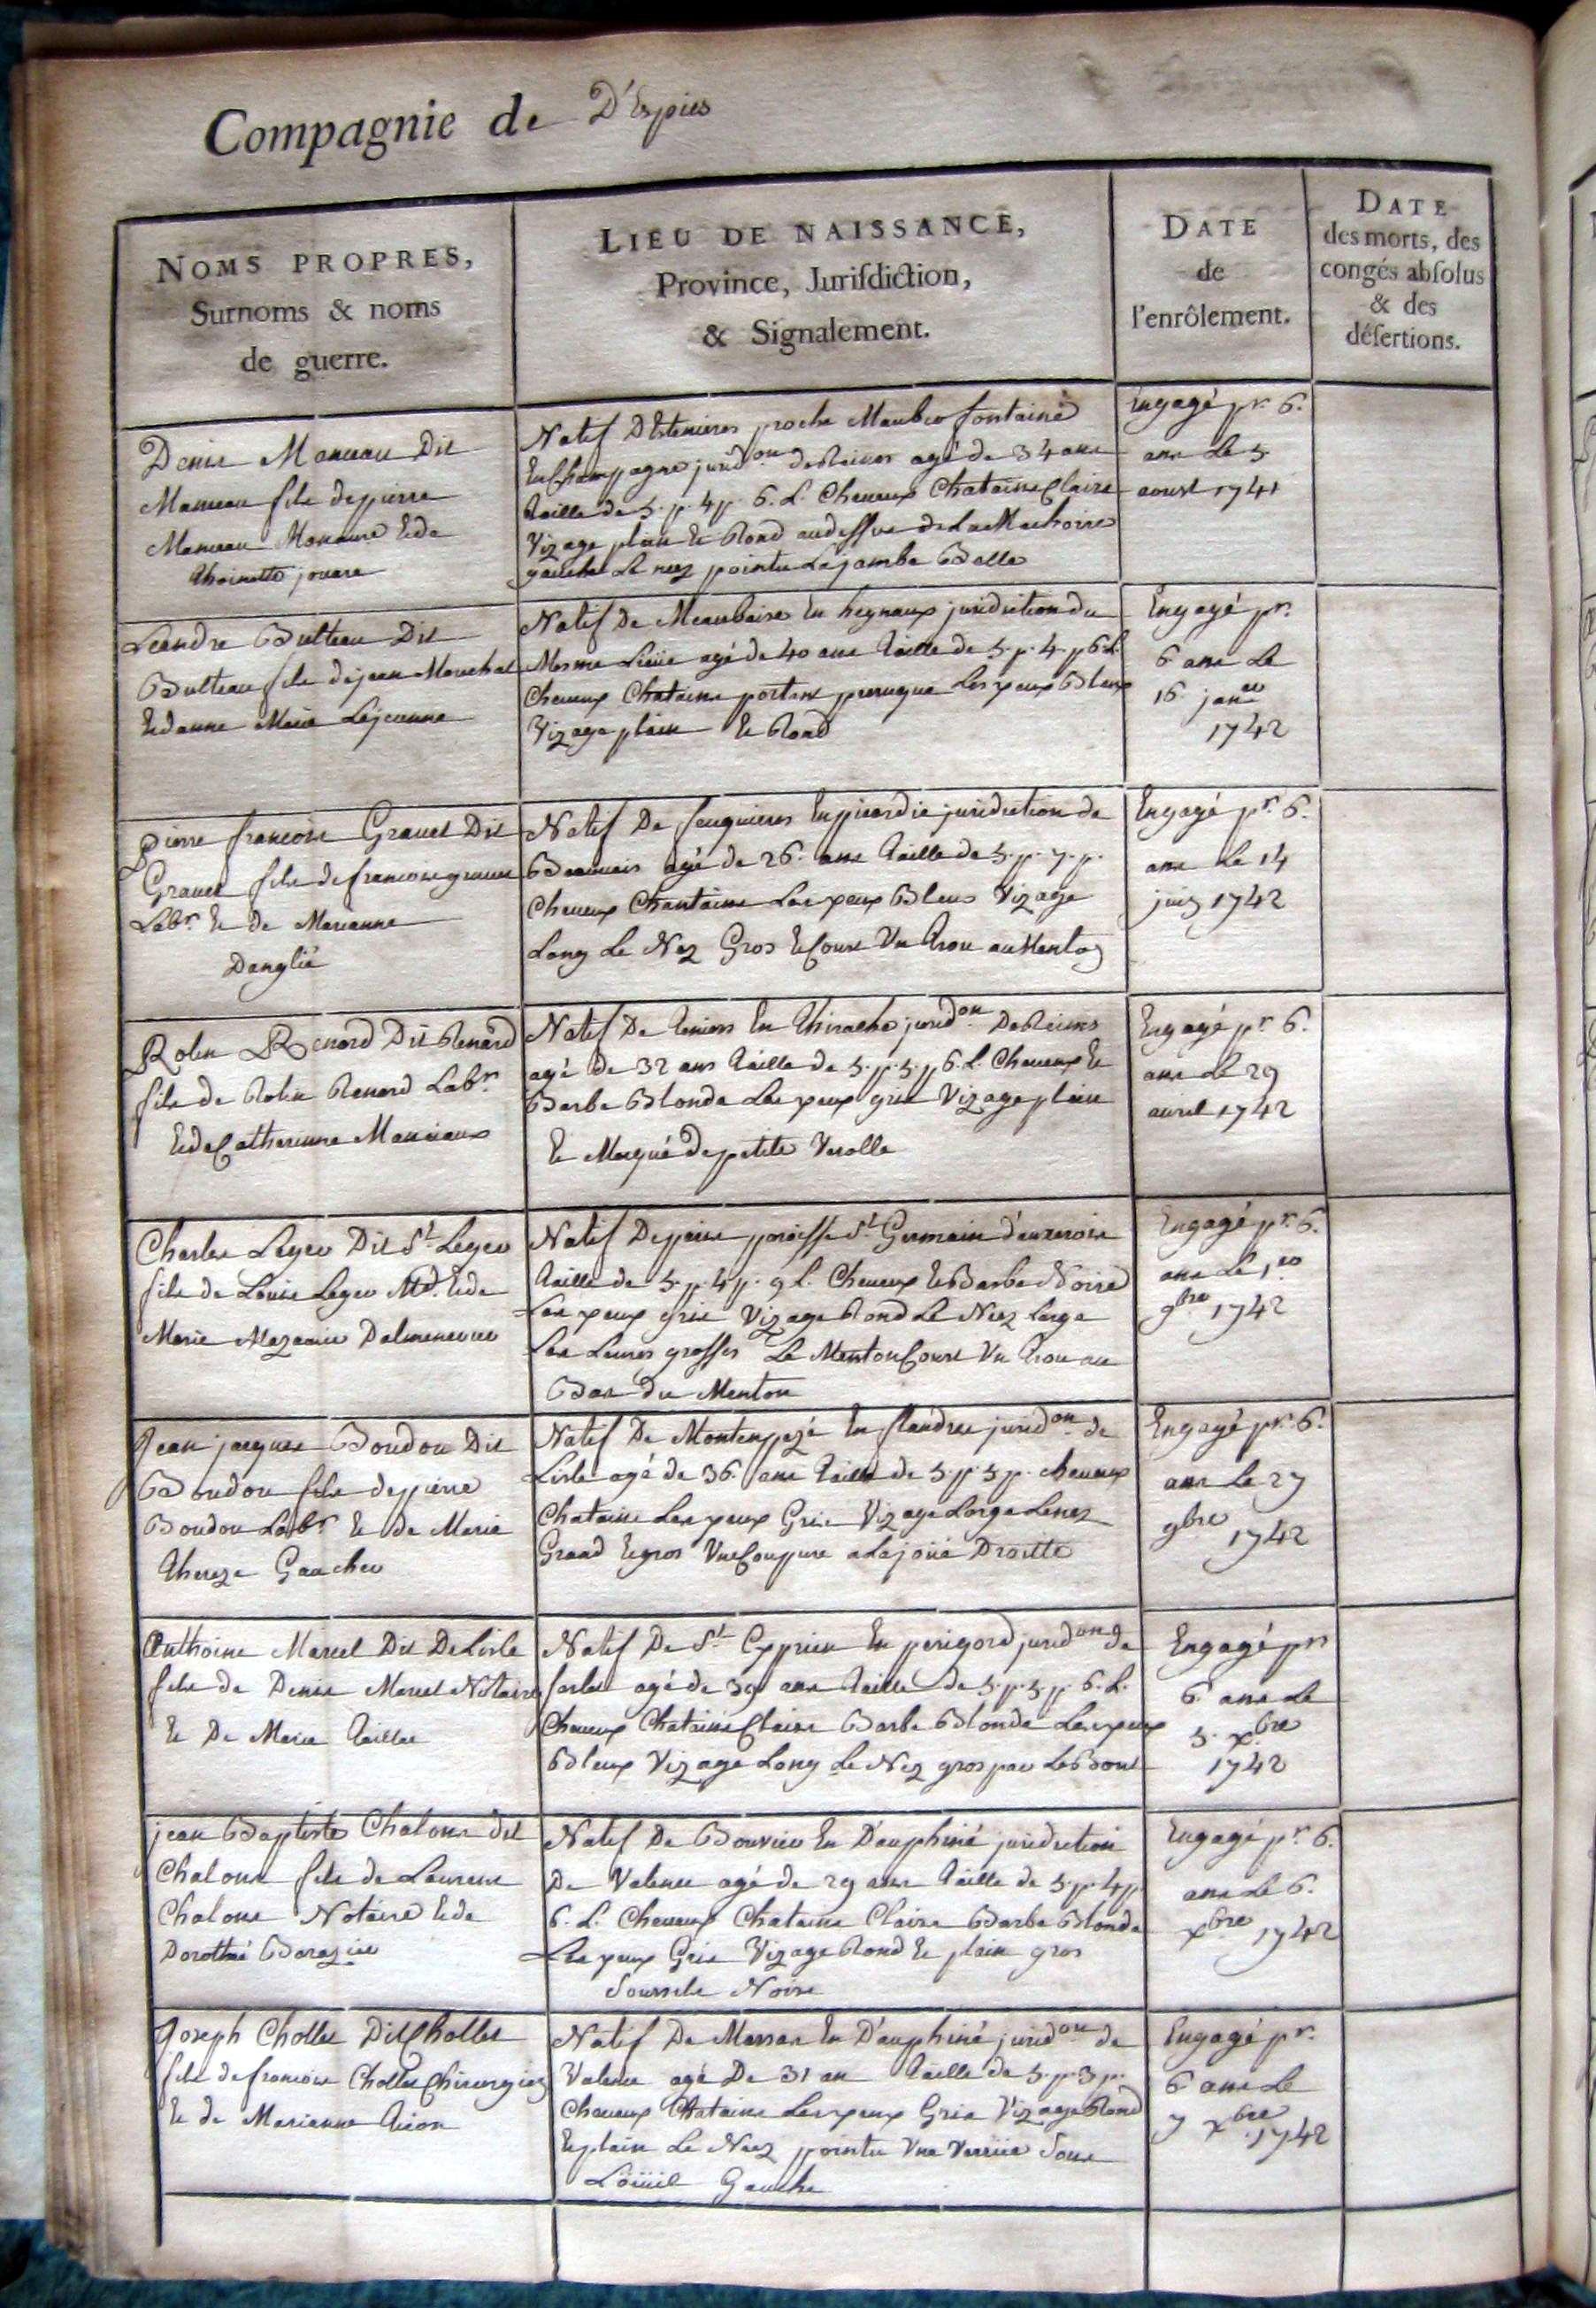 Compagnie de D'Espies
NOMS PROPRES,
Surnoms & noms
de guerre.
LIEU DE NAISSANCE,
Province, Jurisdiction,
& Signalement.
DATE
de
l'enrôlement.
DATE
des morts, des
congés absolus
& des
désertions.
Denis Manceau Dit
Manceau fils de pierre
Manceau Et de
Thoinette jouare
Natif D'Estenieres proche Maubeo fontaine
En Champagne juridon de Reims agé de 34 ans
taille de 5. p. 4 p. 6. L. Cheueux Chatains Claire
Vizage plain Et Rond au dessus de La Machoire
gauche Le nez pointu La jambe Belle
Engagé pr. 6.
ans Le 5.
aoust 1741
Leandre Bulteau Dit
Bulteau fils de jean Marechal
Et danne Marie Lejeunne
Natif De Meaubaise En hegnaux juridiction du
Mesme Lieüe agé de 40 ans taille de 5. p. 4. p 6 L.
Cheueux Chatains portant perruque Les yeux Bleux
Vizage plain Et Rond
Engagé pr.
6. ans Le
16 janer
1742
Pierre francois Grauet Dit
Grauet fils de francois grauet
Labr. Et de Marianne
Danglié
Natif De feuquieres En picardie juridiction de
Beauuais agé de 26. ans taille de 5. p. 7. p.
Cheueux Chantains Les yeux Bleus Vizage
Long Le Nez Gros Et Court Vn trou au Menton
Engagé pr. 6.
ans Le 14
juin 1742
Robin Renard Dit Renard
fils de Robin Renard Labr.
Et de Catherinne Manciaux
Natif De En Thirache juridon De Reims
agé de 32 ans taille de 5. p. 5. p 6. L. Cheueux Et
Barbe Blonde Les yeux gris Vizage plain
Et Marqué de petite Verolle
Engagé pr 6.
ans Le 29
auril 1742
Charles Leger Dit St Leger
fils de Louis Leger Md. Et de
Marie
Natif De paris paroisse St Germain d'auxerois
taille de 5. p. 4 p. 9 L. Cheueux Et Barbe Noire
Les yeux gris Vizage Rond Le Nez Large
Les Leures grosses Le Menton Court Vn trou au
Bas du Menton
Engagé pr. 6.
ans Le 1.er
9bre 1742
Jean jacques Boudou Dit
Boudou fils de pierre
Boudou Labr. Et de Marie
Thereze Gaucher
Natif De Montenpezé En flandres juridon de
Lisle agé de 36. ans taille de 5. p. 5 p. cheueux
Chatains Les yeux Gris Vizage Large Le nez
Grand Et gros Vne Coupure a La joüe Droitte
Engagé pr. 6.
ans Le 27
9bre 1742
Anthoine Marcel Dit De Lisle
fils de Denis Marcel Notaire
Et De Marie
Natif De St. Cyprien En perigord juridon de
sarlat agé de 39 ans taille de 5. p. 5. p. 6. L.
Cheueux Chatains Claire Barbe Blonde Les yeux
Bleux Vizage Long Le Nez gros par Le Bout
Engagé pr
6. ans Le
5. xbre
1742
jean Baptiste Chalons dit
Chalons fils de Laurens
Chalons Notaire Et de
Dorothé
Natif De Bouvier En Dauphiné juridiction
De Valence agé de 29 ans taille de 5. p. 4 p
6. L. Cheueux Chatains Claire Barbe Blonde
Les yeux Gris Vizage Rond Et plain gros
Sourcils Noirs
Engagé pr. 6.
ans Le 6.
xbre 1742
Joseph Chollet Dit Chollet
fils de francois Chollet Chirurgien
Et de Marianne
Natif De Marsas En Dauphiné juridon de
Valence agé De 31 an taille de 5. p. 3 p.
Cheueux Chatains Les yeux Gris Vizage Rond
Et plain Le Nez pointu Vne Verrüe Sous
L'oüil Gauche
Engagé pr.
6. ans Le
7 xbre 1742